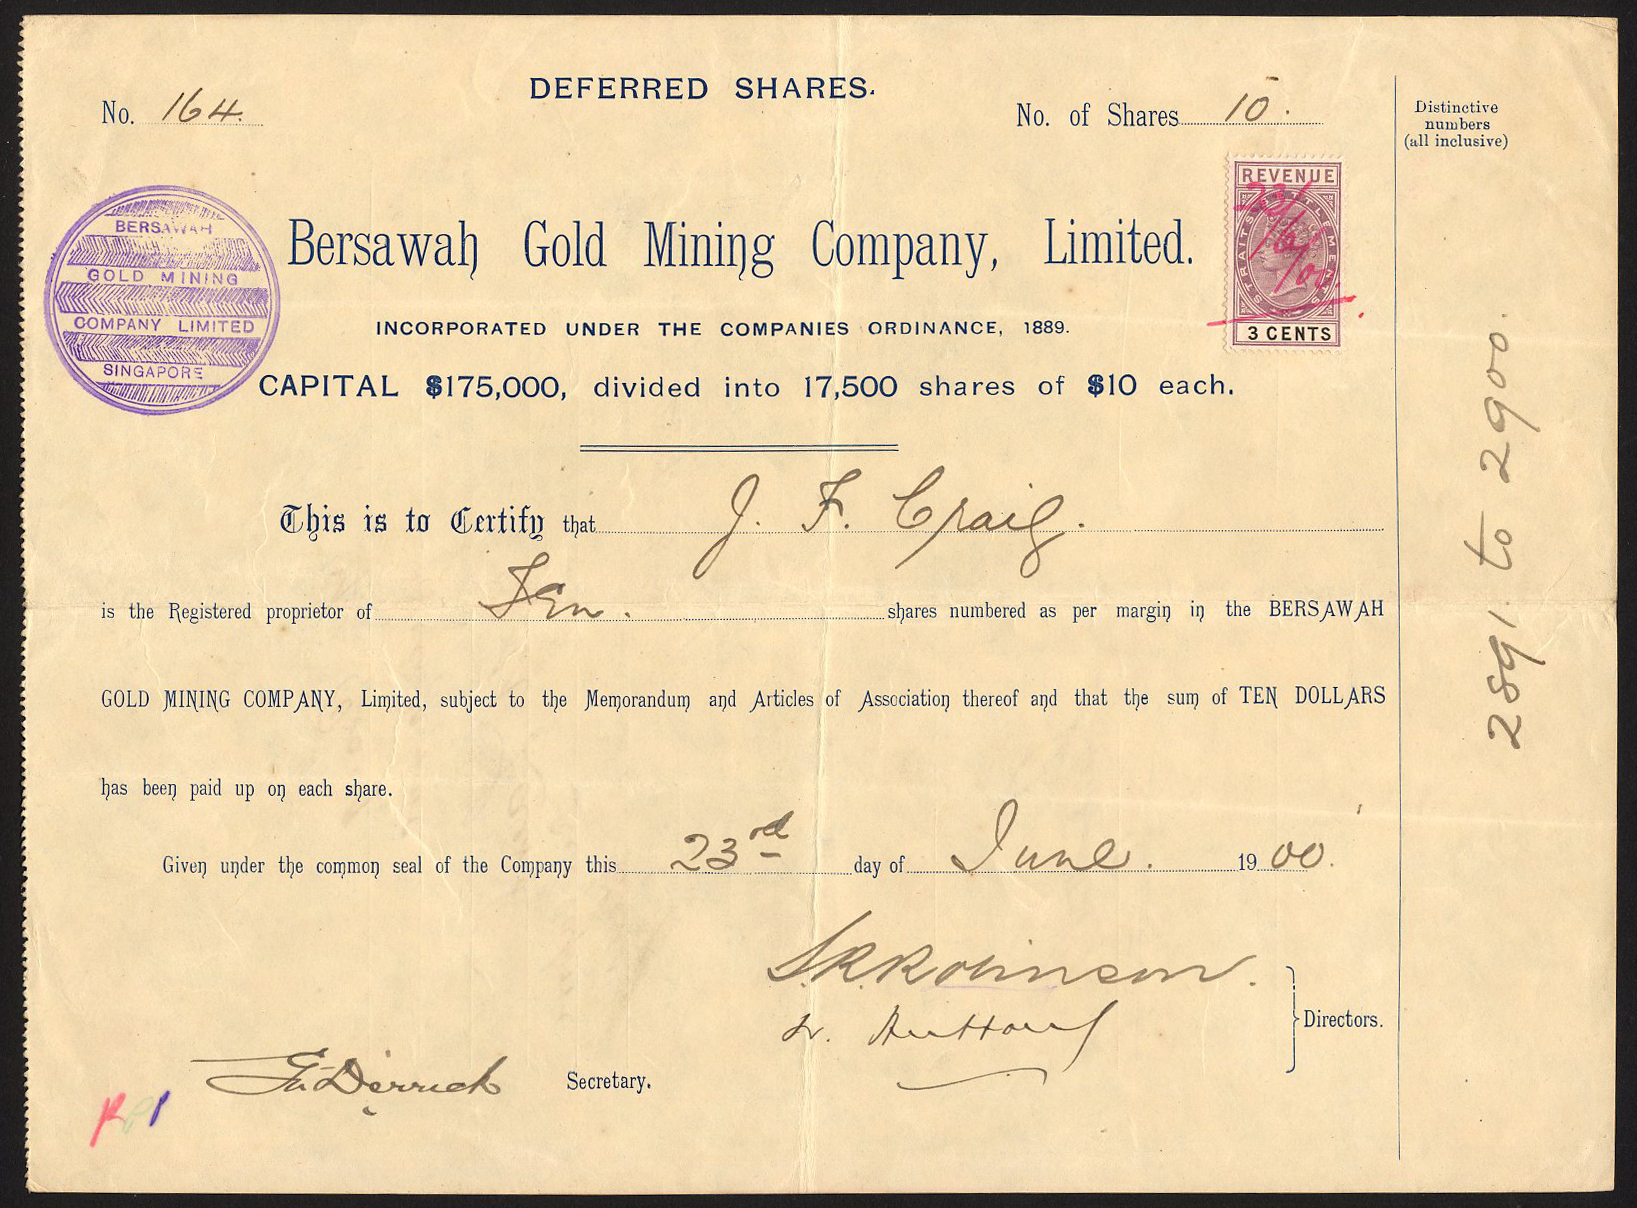 DEFERRED SHARES.
No. 164.
No. of Shares 10.
Distinctive
numbers
(all inclusive)
REVENUE
STRAITS SETTLEMENTS
23/6/00
3 CENTS
BERSAWAH
GOLD MINING
COMPANY LIMITED
SINGAPORE
Bersawah Gold Mining Company, Limited.
INCORPORATED UNDER THE COMPANIES ORDINANCE, 1889.
CAPITAL $175,000, divided into 17,500 shares of $10 each.
This is to Certify that J. F. Craig.
is the Registered proprietor of Ten. shares numbered as per margin in the BERSAWAH
GOLD MINING COMPANY, Limited, subject to the Memorandum and Articles of Association thereof and that the sum of TEN DOLLARS
has been paid up on each share.
Given under the common seal of the Company this 23rd day of June. 1900.
2891 to 2900.
S. R. Robinson.
Directors.
Derrick
Secretary.